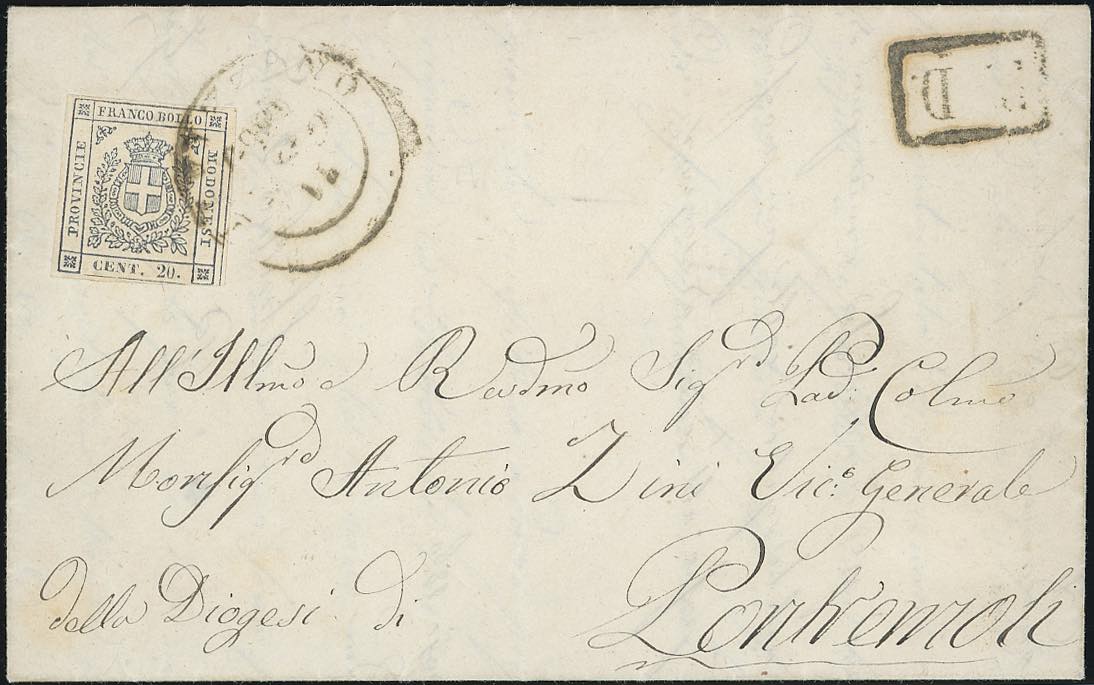 FRANCO BOLLO
PROVINCIE
MODONESI
CENT. 20.
P. D.
All' Illmo e Revdmo Sigrd Pad. Colmo
Monsigrd Antonio Zini Vico Generale
della Diogesi di
Pontremoli